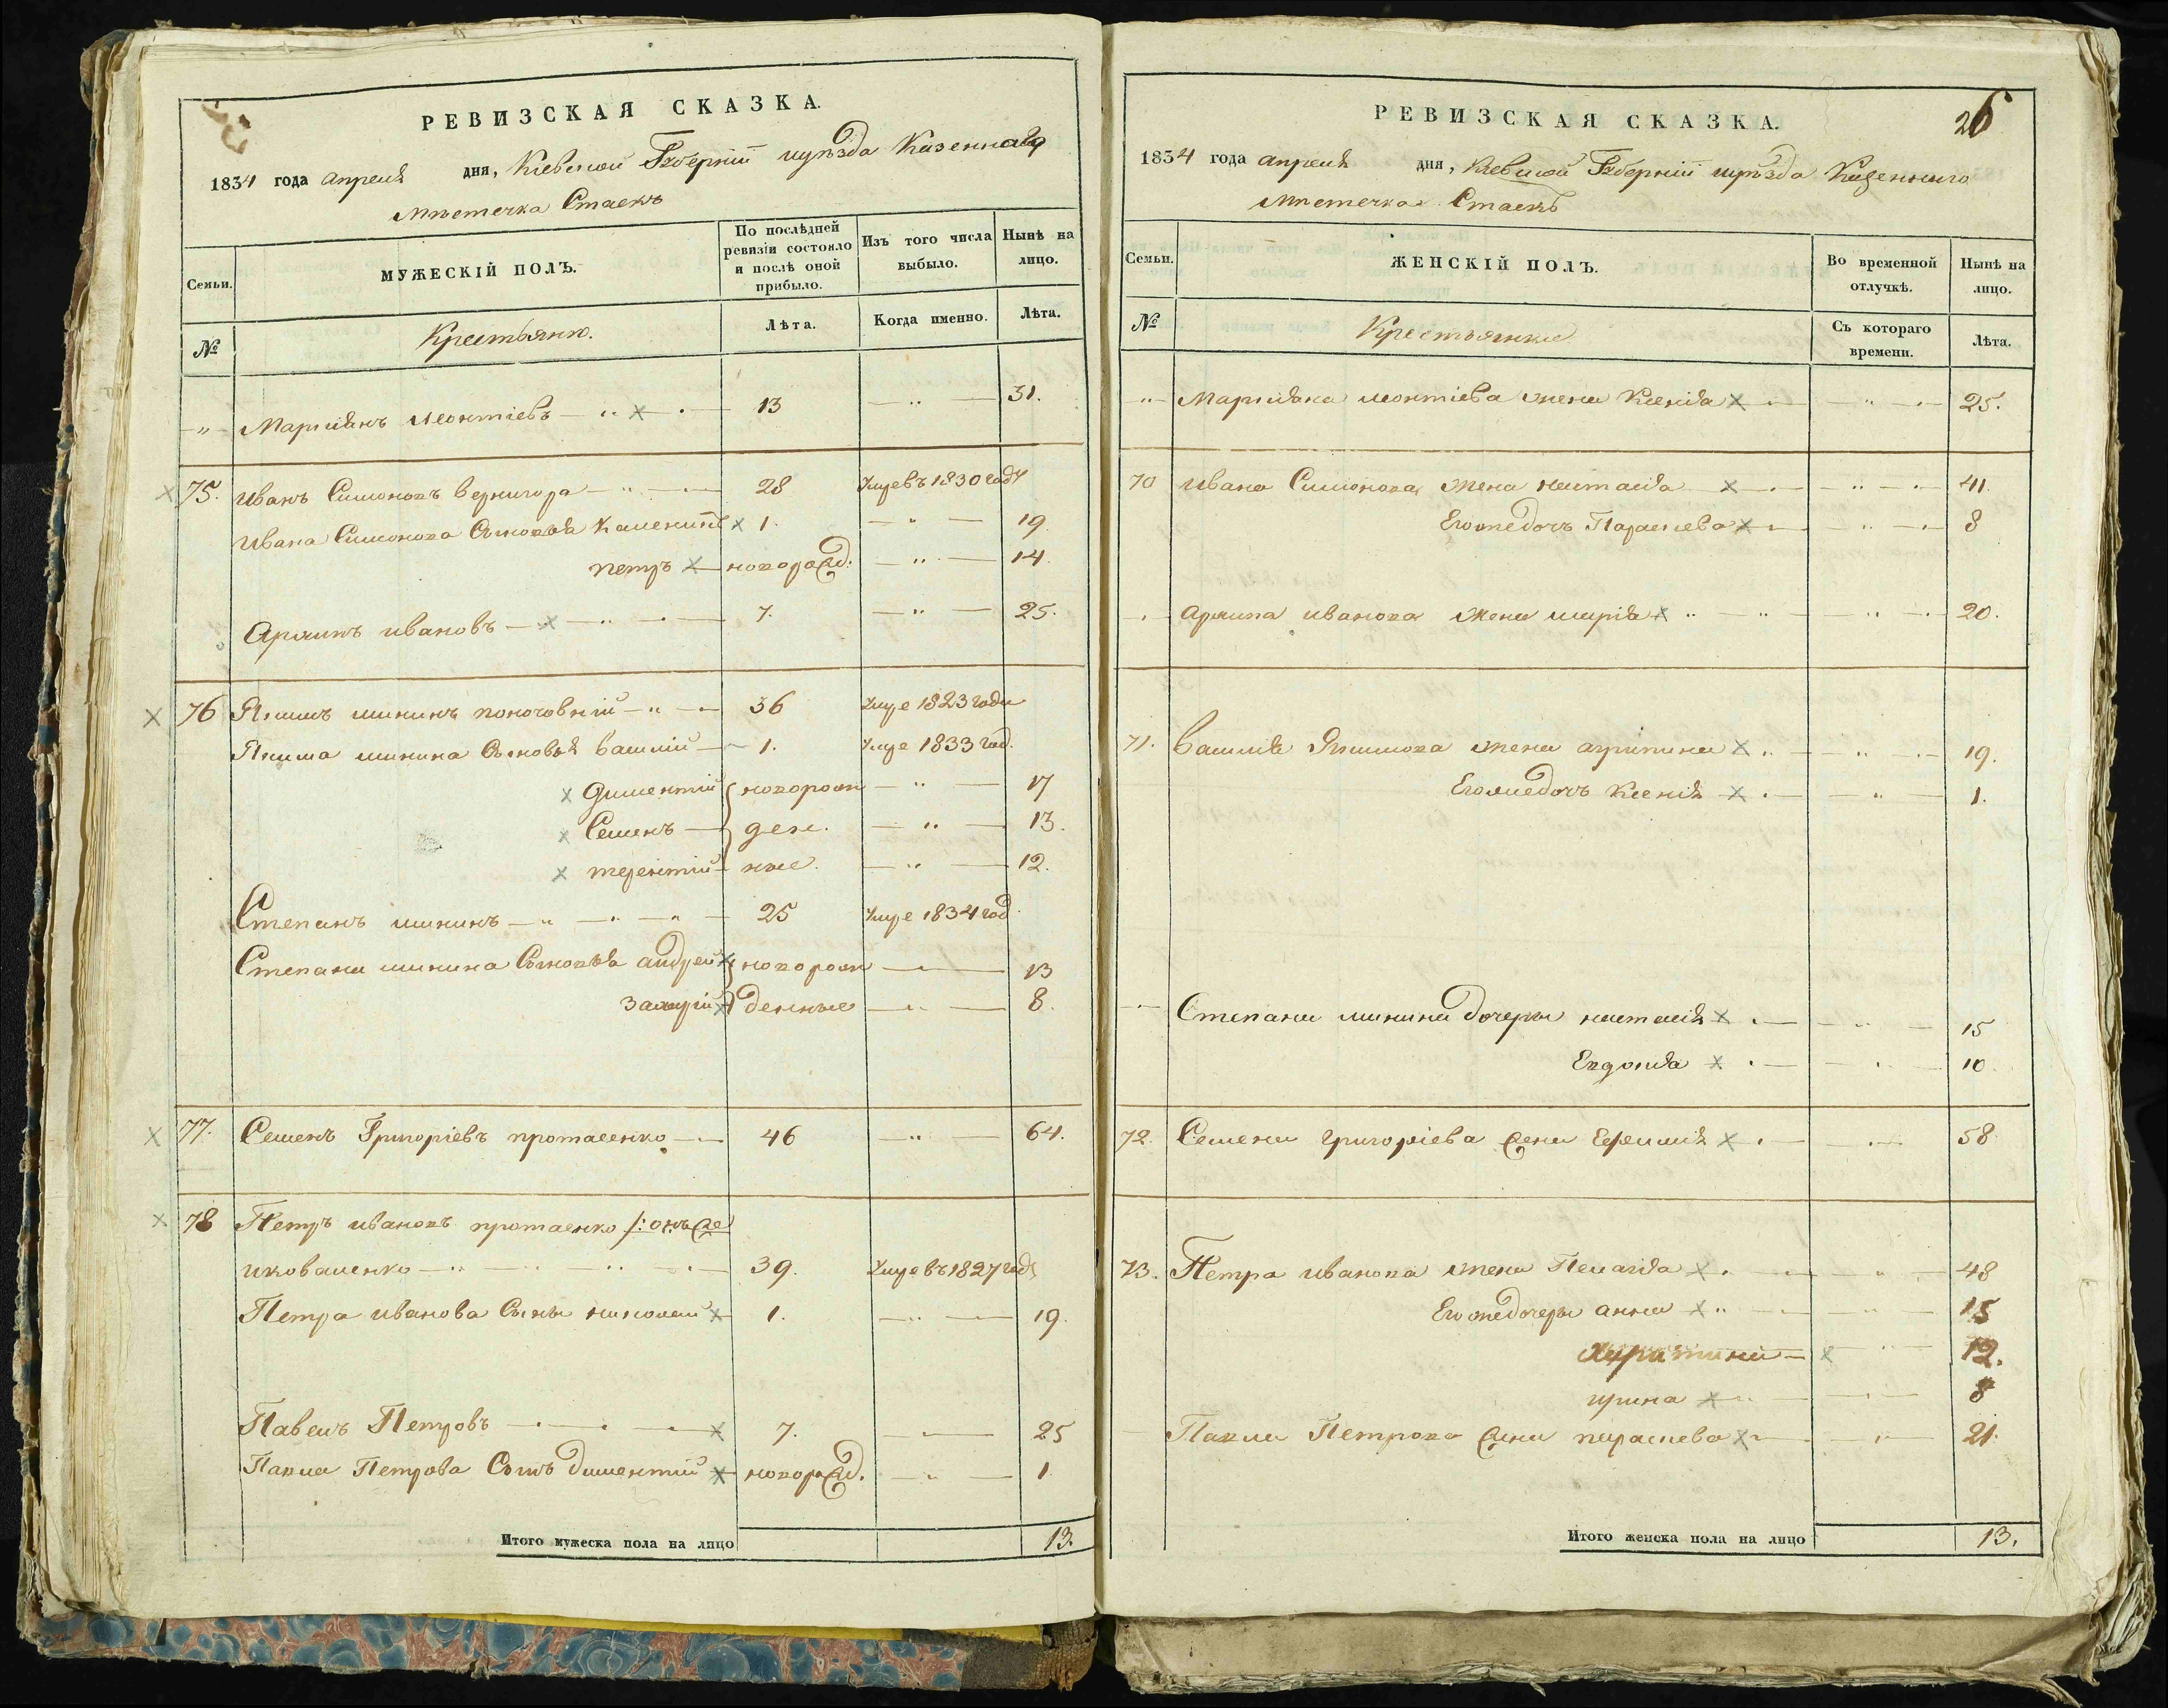 РЕВИЗСКАЯ СКАЗКА.
1834 года апреля дня, Кіевской Губерніи уѣзда Казеннаго
Мѣстечка Стаекъ
Семьи.
МУЖЕСКІЙ ПОЛЪ.
По послѣдней ревизіи состояло и послѣ оной прибыло.
Изъ того числа выбыло.
Нынѣ на лицо.
№
Крестьяне.
Лѣта.
Когда именно.
Лѣта.
„ Марціянъ Леонтіевъ 13 31.
75. Иванъ Симоновъ Вернигора 28 Умре въ 1830 году
Ивана Симонова Сыновья Каленикъ 1. 19.
Петръноворожд: 14
Ивановъ 7. 25.
76 Якимъ Мининъ 36 Умре 1823 года
Якима Минина Сыновья Василій 1. Умре 1833 год.
Дементій новорож 17
Семенъ ден 13.
Терентій ные. 12.
Степанъ Мининъ 25 Умре 1834 год.
Степана Минина Сыновья Андрей новорож 13
Захарій денные 8.
77. Семенъ Григоріевъ Протасенко 46 64.
78 Петръ Ивановъ Протасенко /: онъ же
Иковаленко 39. Умре въ 1827 год
Петра Иванова Сынъ Николай 1. 19.
Павелъ Петровъ 7. 25
Павла Петрова Сынъ Дементій новорожд. 1
Итого мужеска пола на лицо 13.
РЕВИЗСКАЯ СКАЗКА. 26
1834 года апреля дня, Кіевской Губерніи уѣзда Казеннаго
Мѣстечка Стаекъ
Семьи.
ЖЕНСКІЙ ПОЛЪ.
Во временной отлучкѣ.
Нынѣ на лицо.
№
Крестьянки
Съ котораго времени.
Лѣта.
„ Марціяна Леонтіева жена Ксенія 25.
70 Ивана Симонова жена Настасія 41.
Его же дочь Параскева 8
Иванова жена Марія 20.
71. Василія Якимова жена Агрипина 19.
Его же дочь Ксенія 1.
Степана Минина дочери Настасія 15
Евдокія 10.
72. Семена Григоріева жена Ефимія 58
73. Петра Иванова жена Пелагія 48
Его же дочери Анна 15
Харитина 12.
Ирина 8
Павла Петрова жена Параскева 21.
Итого женска пола на лицо 13.